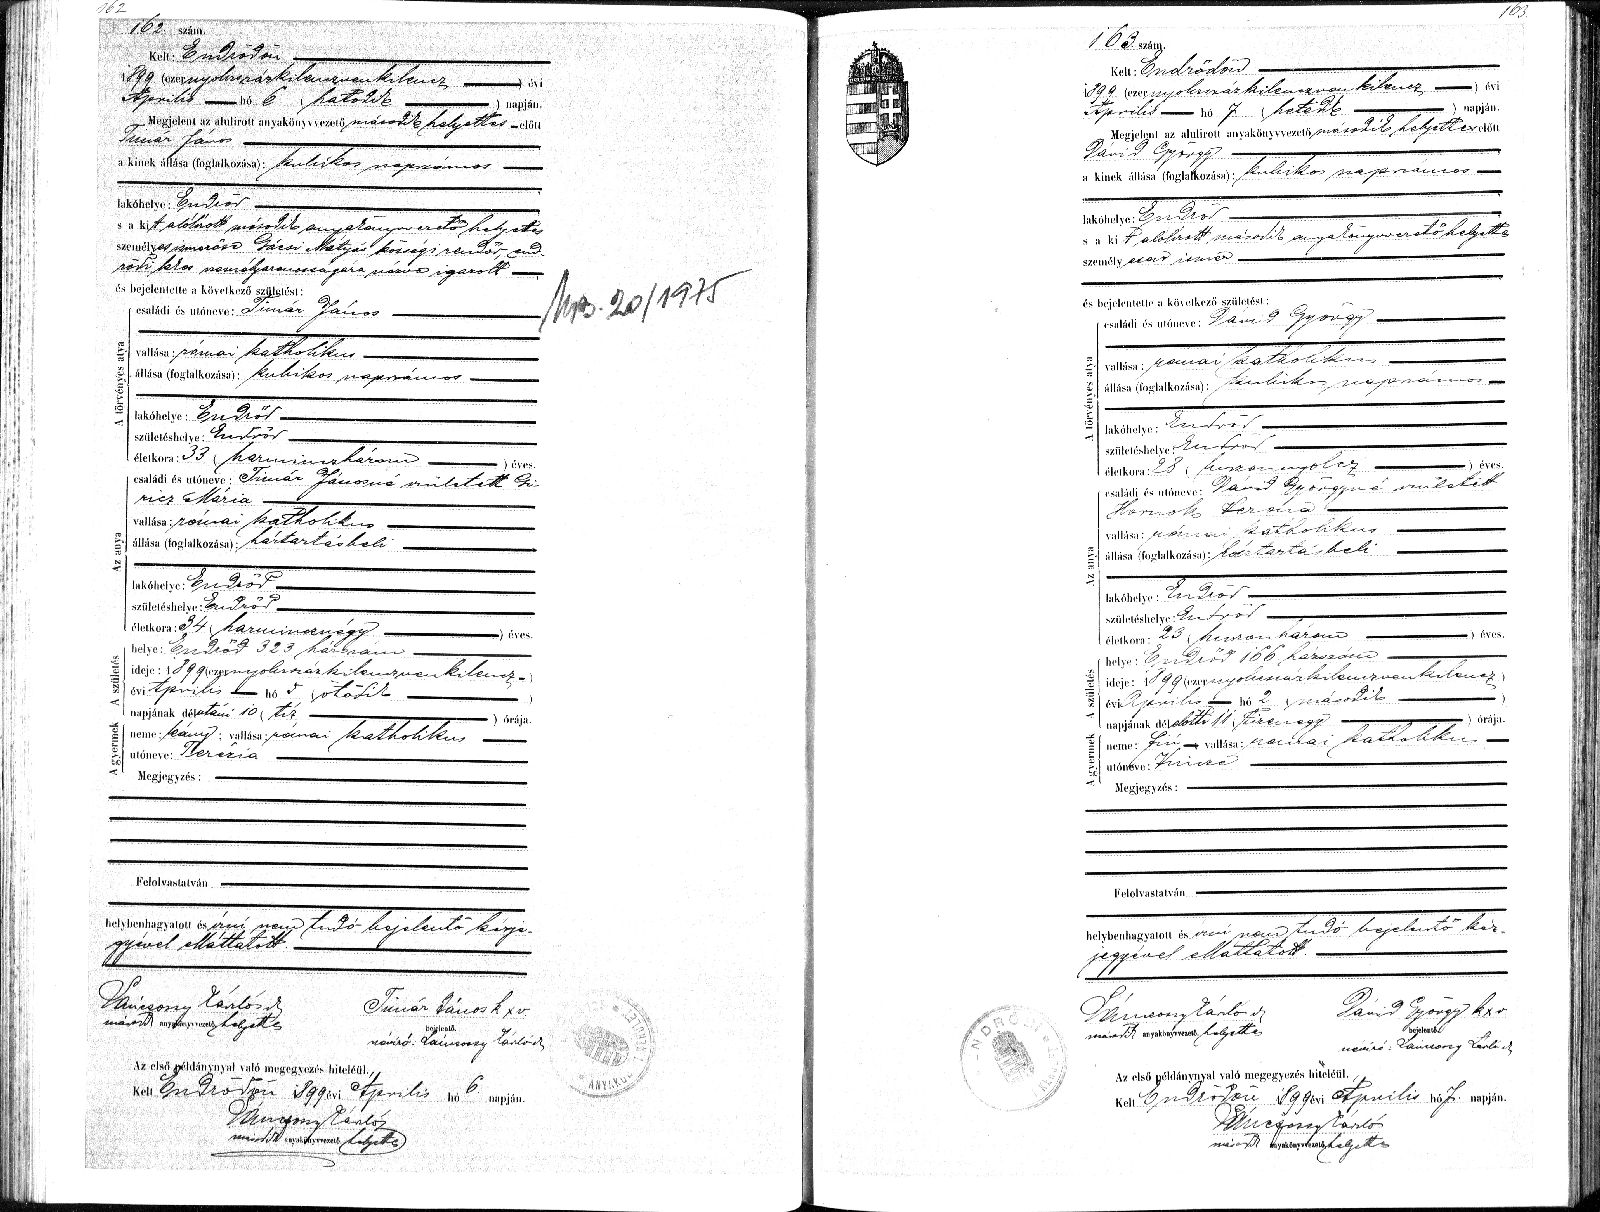 162
162 szám.
Kelt: Endrődön
1899 (ezernyolczszázkilenczvenkilencz) évi
Április hó 6 (hatodik) napján.
Megjelent az alulirott anyakönyvvezető második helyettes előtt
Timár János
a kinek állása (foglalkozása): kubikos napszámos
lakóhelye: Endrőd
s a kit alólirott második anyakönyvvezető helyettes
személyes ismerőse Mátyás községi rendőr, end-
rődi lakos személyazonosságára nézve igazolt
és bejelentette a következő születést:
A törvényes atya
családi és utóneve: Timár János
20/1975
vallása: római katholikus
állása (foglalkozása): kubikos napszámos
lakóhelye: Endrőd
születéshelye: Endrőd
életkora: 33 (harminczhárom) éves.
Az anya
családi és utóneve: Timár Jánosné született Gi-
ricz Mária
vallása: római katholikus
állása (foglalkozása): háztartásbeli
lakóhelye: Endrőd
születéshelye: Endrőd
életkora: 34 (harmincznégy) éves.
A születés
helye: Endrőd 323 házszám
ideje: 1899 (ezernyolczszázkilenczvenkilencz)
évi Április hó 5 (ötödik)
napjának délutáni 10 (tiz) órája.
A gyermek
neme: leány; vallása: római katholikus
utóneve: Terézia
Megjegyzés:
Felolvastatván
helybenhagyatott és irni nem tudó bejelentő kézje-
gyével elláttatott
Károly
második anyakönyvvezető helyettes
Timár János k x v
bejelentő.
névíró: Károly
Az első példánynyal való megegyezés hiteléül.
Kelt Endrődön 1899 évi Április hó 6 napján.
Károly
második anyakönyvvezető helyettes
163
163 szám.
Kelt: Endrődön
1899 (ezernyolczszázkilenczvenkilencz) évi
Április hó 7 (hetedik) napján.
Megjelent az alulirott anyakönyvvezető második helyettes előtt
Dávid György
a kinek állása (foglalkozása): kubikos napszámos
lakóhelye: Endrőd
s a kit alólirott második anyakönyvvezető helyettes
személyesen ismer
és bejelentette a következő születést:
A törvényes atya
családi és utóneve: Dávid György
vallása: római katholikus
állása (foglalkozása): kubikos napszámos
lakóhelye: Endrőd
születéshelye: Endrőd
életkora: 28 (huszonnyolcz) éves.
Az anya
családi és utóneve: Dávid Györgyné született
Hornok Terézia
vallása: római katholikus
állása (foglalkozása): háztartásbeli
lakóhelye: Endrőd
születéshelye: Endrőd
életkora: 23 (huszonhárom) éves.
A születés
helye: Endrőd 166 házszám
ideje: 1899 (ezernyolczszázkilenczvenkilencz)
évi Április hó 2 (második)
napjának délelőtti 11 (tizenegy) órája.
A gyermek
neme: fiú; vallása: római katholikus
utóneve: Vincze
Megjegyzés:
Felolvastatván
helybenhagyatott és irni nem tudó bejelentő kéz-
jegyével elláttatott.
Károly
második anyakönyvvezető helyettes
Dávid György k x v
bejelentő.
névíró: Károly
Az első példánynyal való megegyezés hiteléül.
Kelt Endrődön 1899 évi Április hó 7. napján.
Károly
második anyakönyvvezető helyettes